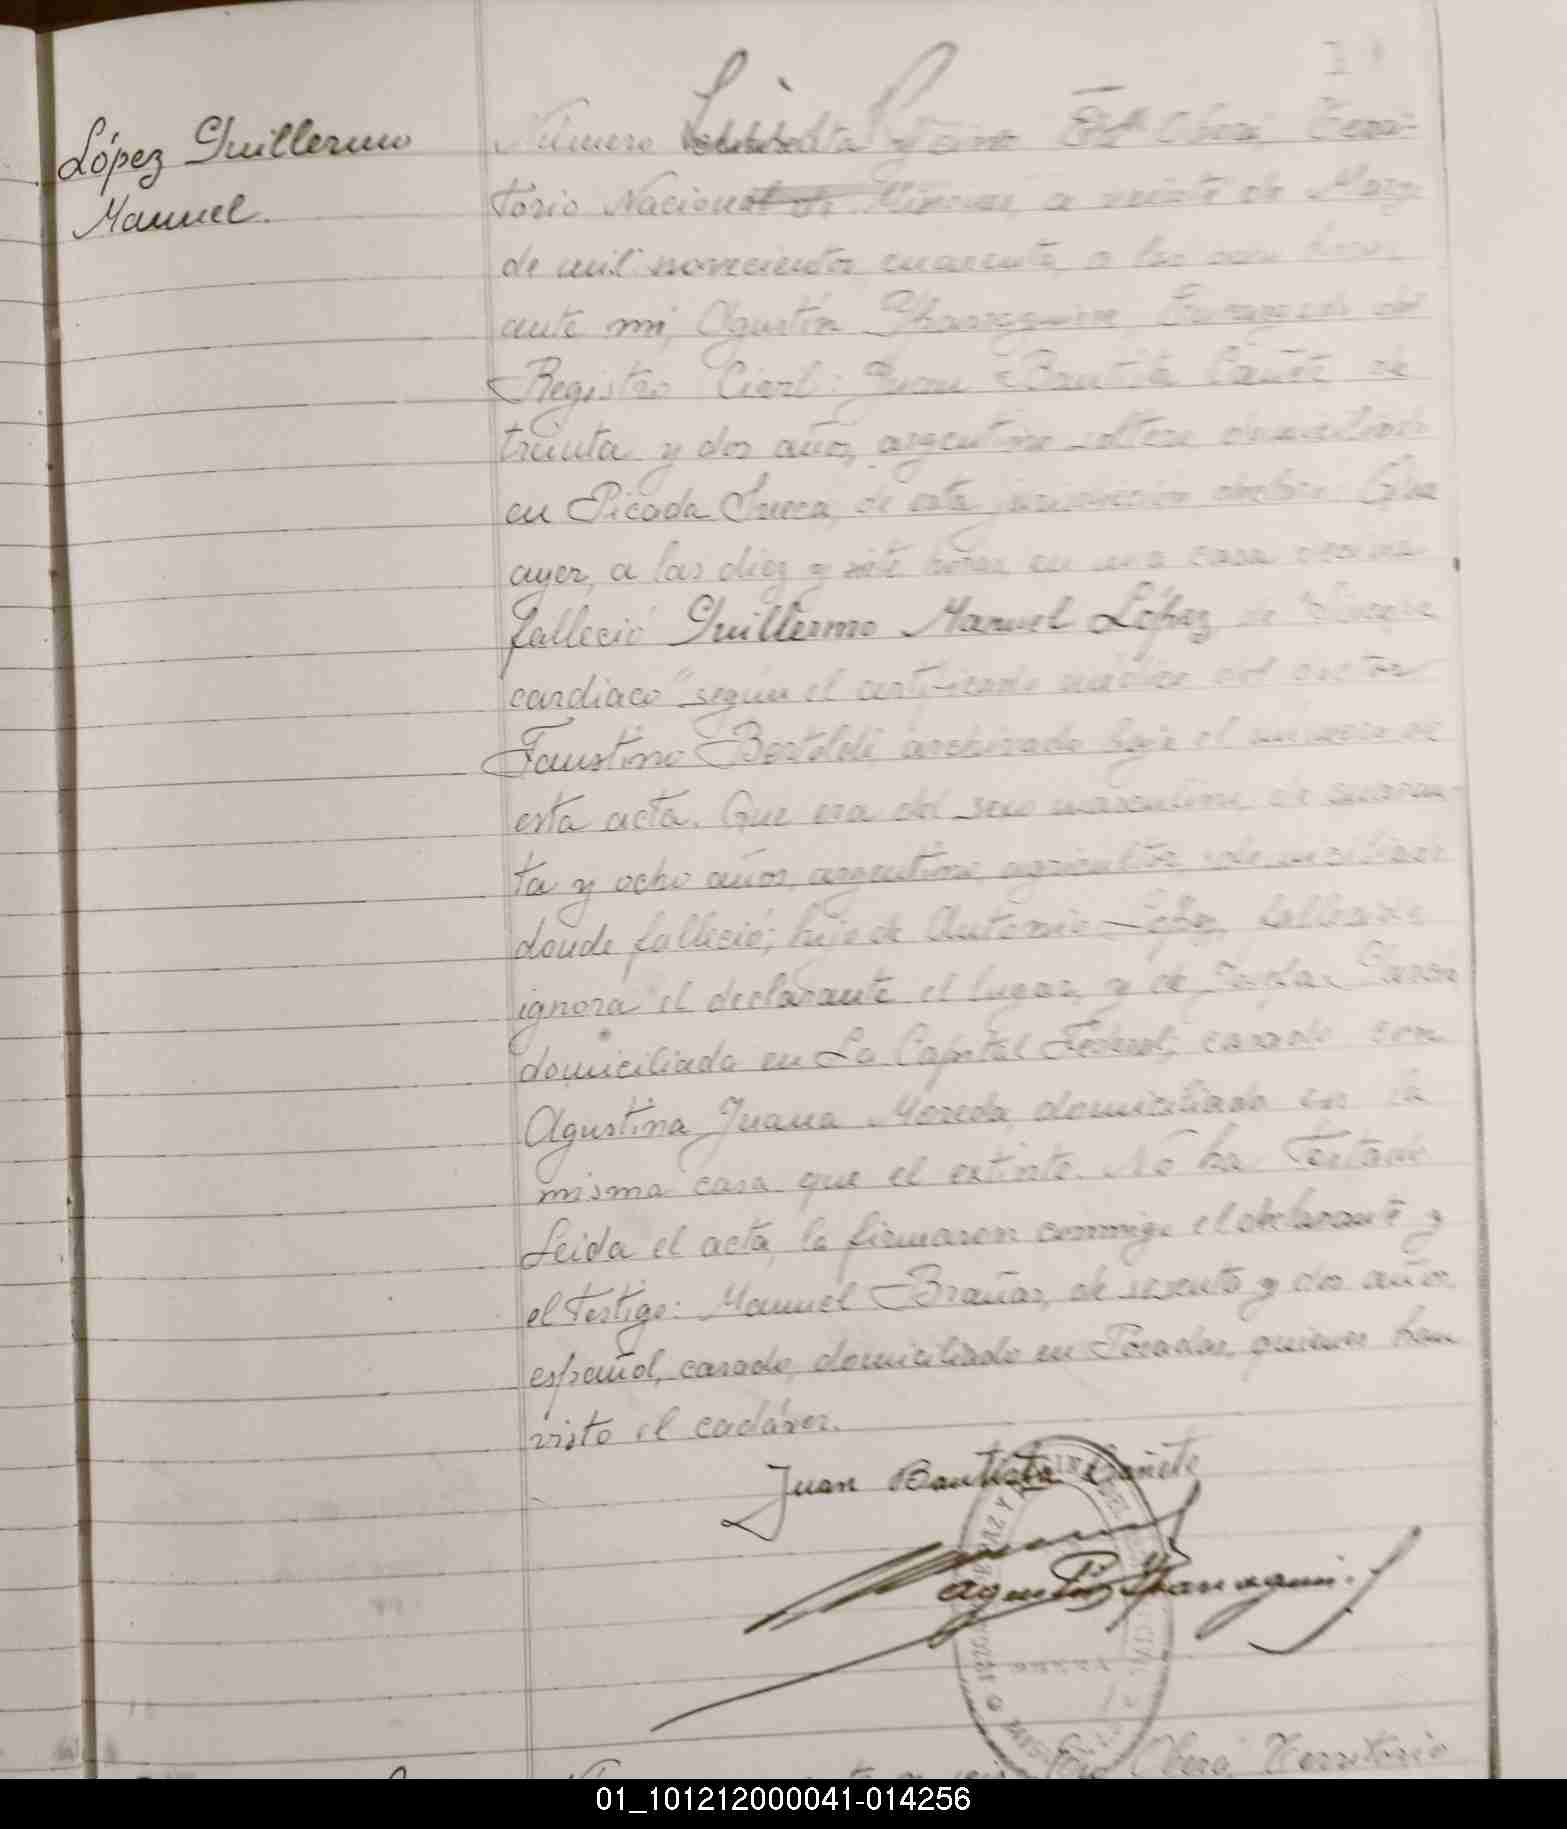 López Guillermo
Manuel.
Número y cinco En Oberá, Terri-
torio Nacional de Misiones, a veinte de Marzo
de mil novecientos cuarenta, a las once horas,
ante mí, Agustín Encargado del
Registro Civil: Juan Bautista Cañete de
treinta y dos años, argentino soltero domiciliado
en Picada Sueca, de esta jurisdicción declaró: Que
ayer, a las diez y siete horas, en una casa
falleció Guillermo Manuel López de "Síncope
cardiaco" según el certificado médico del doctor
Faustino Bertoldi archivado bajo el número de
esta acta. Que era del sexo masculino, de cuaren-
ta y ocho años, argentino, agricultor, domiciliado
donde falleció; hijo de Antonio López, fallecido
ignora el declarante el lugar, y de
domiciliada en La Capital Federal; casado con
Agustina Juana Moreda, domiciliada en la
misma casa que el extinto. No ha testado
Leida el acta, la firmaron conmigo el declarante y
el testigo: Manuel Brañas, de sesenta y dos años,
español, casado, domiciliado en Posadas, quienes han
visto el cadáver.
Juan Bautista Cañete
Oberá, Territorio
01_101212000041-014256